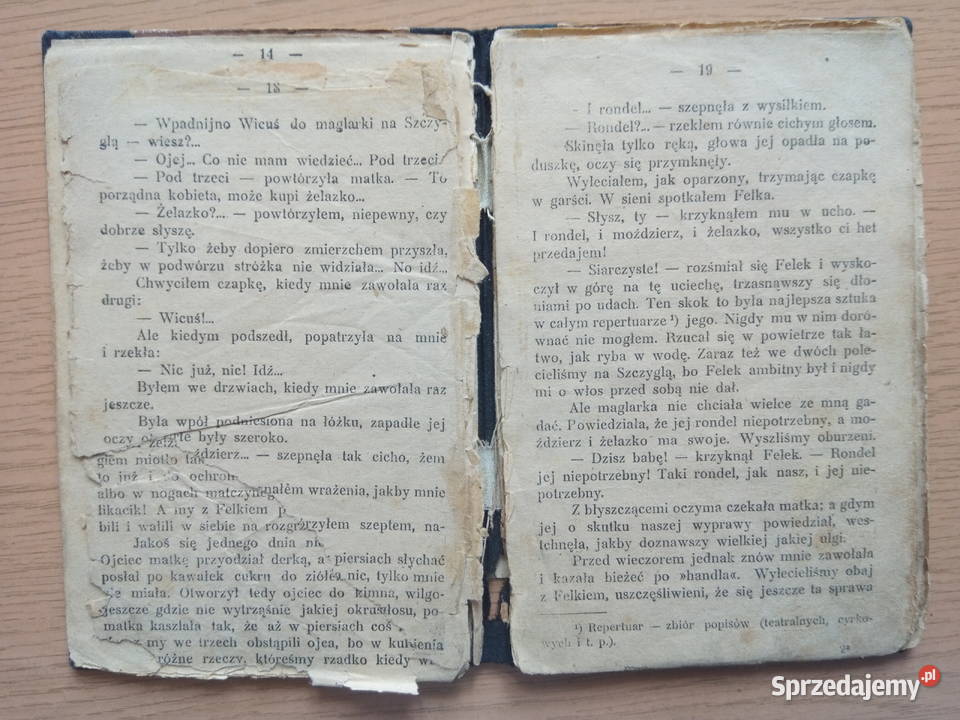 — 14 —
— 18 —
— Wpadnijno Wicuś do maglarki na Szczy-
glą — wiesz?...
— Ojej... Co nie mam wiedzieć... Pod trzeci.
— Pod trzeci — powtórzyła matka. — To
porządna kobieta, może kupi żelazko...
— Żelazko?... — powtórzyłem, niepewny, czy
dobrze słyszę.
— Tylko żeby dopiero zmierzchem przyszła,
żeby w podwórzu stróżka nie widziała... No idź...
Chwyciłem czapkę, kiedy mnie zawołała raz
drugi:
— Wicuś!...
Ale kiedym podszedł, popatrzyła na mnie
i rzekła:
— Nic już, nic! Idź...
Byłem we drzwiach, kiedy mnie zawołała raz
jeszcze.
Była wpół podniesiona na łóżku, zapadłe jej
oczy były szeroko.
giem miotło ździerz... — szepnęła tak cicho, żem
to już i do ochron
albo w nogach matczyne nałem wrażenia, jakby mnie
likacik! A my z Felkiem p
bili i walili w siebie na rozgr rzyłem szeptem, na-
Jakoś się jednego dnia
Ojciec matkę przyodział derką, a piersiach słychać
posłał po kawałek cukru do ziółe nic, tylko mnie
miała. Otworzył tedy ojciec do kimna, wilgo-
jeszcze gdzie nie wytrząśnie jakiej okruszlosu, po
matka kaszlała tak, że aż w piersiach coś
my we trzech obstąpili ojca, bo w kubienia
różne rzeczy, któreśmy rzadko kiedy wi
— 19 —
- I rondel... — szepnęła z wysiłkiem.
— Rondel?... — rzekłem równie cichym głosem.
Skinęła tylko ręką, głowa jej opadła na po-
duszkę, oczy się przymknęły.
Wyleciałem, jak oparzony, trzymając czapkę
w garści. W sieni spotkałem Felka.
— Słysz, ty — krzyknąłem mu w ucho. —
I rondel, i moździerz, i żelazko, wszystko ci het
przedajem!
— Siarczyste! — rozśmiał się Felek i wysko-
czył w górę na tę uciechę, trzasnąwszy się dło-
niami po udach. Ten skok to była najlepsza sztuka
w całym repertuarze ¹) jego. Nigdy mu w nim doró-
wnać nie mogłem. Rzucał się w powietrze tak ła-
two, jak ryba w wodę. Zaraz też we dwóch pole-
cieliśmy na Szczyglą, bo Felek ambitny był i nigdy
mi o włos przed sobą nie dał.
Ale maglarka nie chciała wielce ze mną ga-
dać. Powiedziała, że jej rondel niepotrzebny, a mo-
ździerz i żelazko ma swoje. Wyszliśmy oburzeni.
— Dzisz babę! — krzyknął Felek. — Rondel
jej niepotrzebny! Taki rondel, jak nasz, i jej nie-
potrzebny.
Z błyszczącemi oczyma czekała matka; a gdym
jej o skutku naszej wyprawy powiedział, wes-
tchnęła, jakby doznawszy wielkiej jakiej ulgi.
Przed wieczorem jednak znów mnie zawołała
i kazała bieżeć po »handla«. Wylecieliśmy obaj
z Felkiem, uszczęśliwieni, że się jeszcze ta sprawa
¹) Repertuar — zbiór popisów (teatralnych, cyrko-
wych i t. p.).
2*
Sprzedajemy.pl